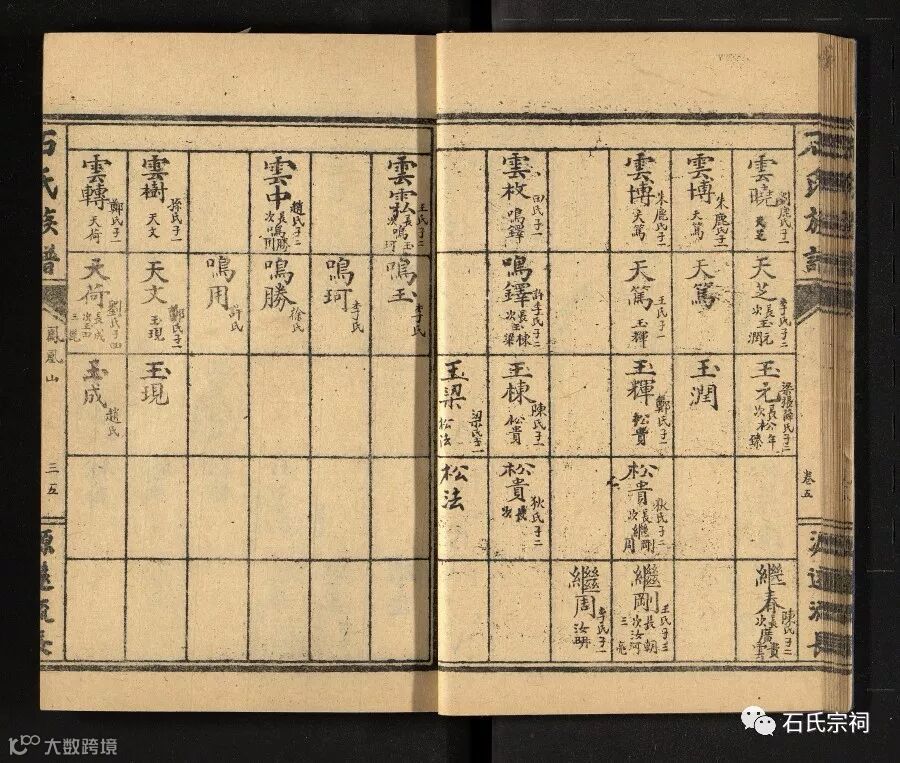 卷五
雲曉
劉鹿氏子一
天芝
雲博
朱鹿氏子一
天篤
雲博
朱鹿氏子一
天篤
雲枚
田氏子一
鳴鐸
天芝
李氏子二
長玉元
次玉潤
天篤
天篤
王氏子一
玉輝
鳴鐸
許李氏子二
長玉棟
次玉梁
玉元
長松年
次松臻
玉潤
玉輝
鄭氏子一
松貴
玉棟
陳氏子一
松貴
玉梁
梁氏子一
松法
松貴
狄氏子二
長繼剛
次繼周
松貴
狄氏子二
長
次
松法
繼春
陳氏子二
長廣貴
次廣雲
繼剛
王氏子三
長汝朝
次汝河
三汝亮
繼周
李氏子一
雲
王氏子二
長鳴玉
次鳴珂
雲中
趙氏子二
長鳴勝
次鳴用
雲樹
孫氏子一
天文
雲轉
鄭氏子一
天荷
鳴玉
李氏
鳴珂
李氏
鳴勝
徐氏
鳴用
許氏
天文
鄭氏子一
玉現
天荷
劉氏子四
長玉成
玉現
玉成
趙氏
石氏族譜
鳳凰山
三五
源遠流長
石氏宗祠
大数跨境